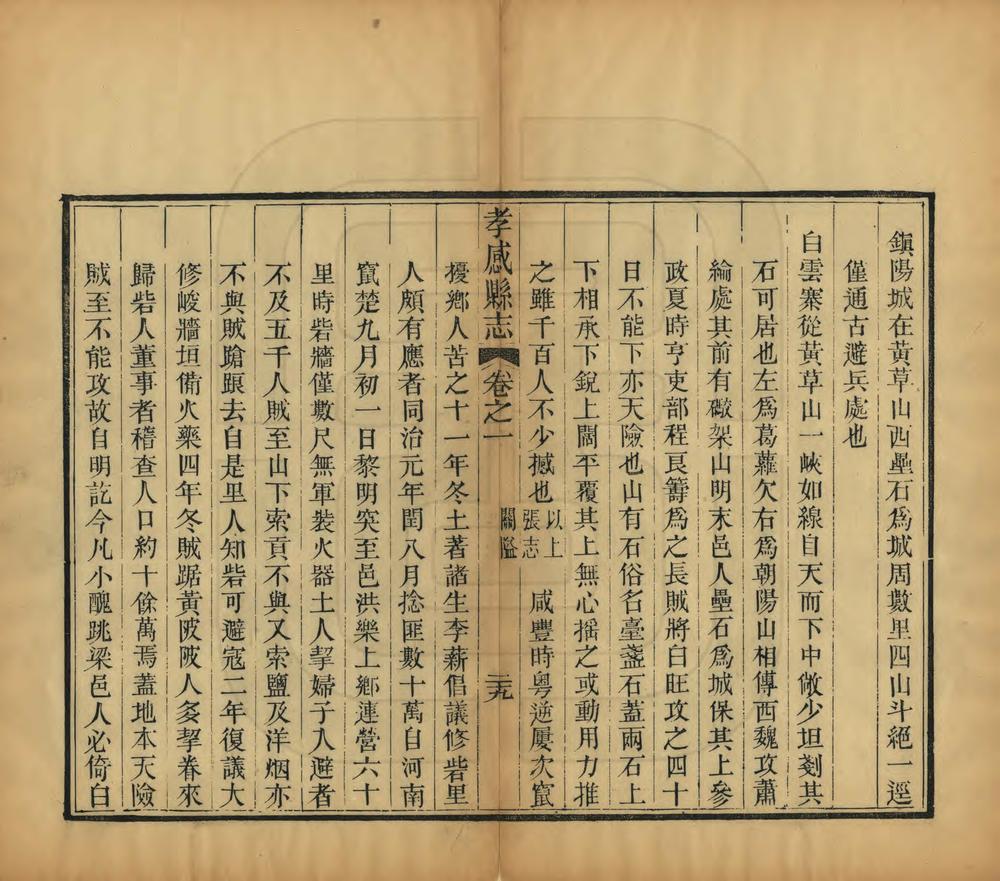 鎭陽城在黃草山西壘石爲城周數里四山斗絕一逕
僅通古避兵處也
白雲寨從黃草山一峽如線自天而下中敞少坦剗其
石可居也左爲葛蘿欠右爲朝陽山相傳西魏攻蕭
綸處其前有礮架山明末邑人壘石爲城保其上參
政夏時亨吏部程良籌爲之長賊將白旺攻之四十
日不能下亦天險也山有石俗名臺盞石蓋兩石上
下相承下銳上闊平覆其上無心搖之或動用力推
之雖千百人不少撼也以上張志關隘 咸豐時粵逆屢次竄
孝感縣志 卷之一 三九
擾鄉人苦之十一年冬土著諸生李薪倡議修砦里
人頗有應者同治元年閏八月捻匪數十萬自河南
竄楚九月初一日黎明突至邑洪樂上鄉連營六十
里時砦牆僅數尺無軍裝火器土人挈婦子入避者
不及五千人賊至山下索貢不與又索鹽及洋烟亦
不與賊蹌踉去自是里人知砦可避寇二年復議大
修峻牆垣備火藥四年冬賊踞黃陂陂人多挈眷來
歸砦人董事者稽查人口約十餘萬焉蓋地本天險
賊至不能攻故自明訖今凡小醜跳梁邑人必倚白